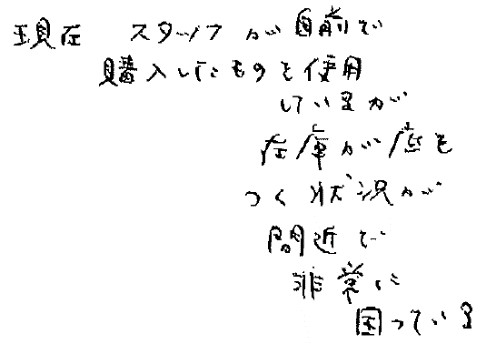 現在 スタッフが自前で
購入したものを使用
していまが
在庫が底を
つく状況が
間近で
非常に
困っている